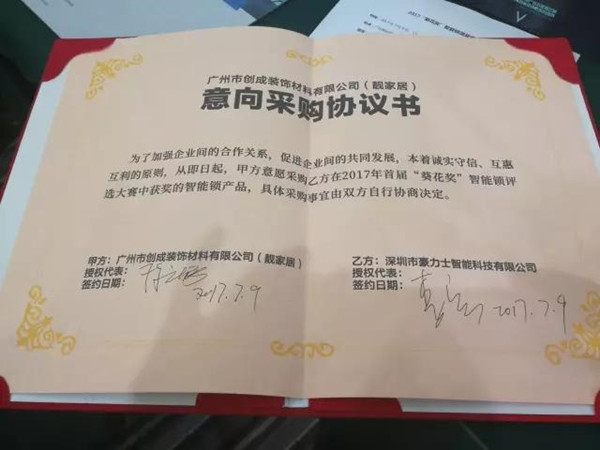 广州市创成装饰材料有限公司（靓家居）
意向采购协议书
为了加强企业间的合作关系，促进企业间的共同发展，本着诚实守信、互惠
互利的原则，从即日起，甲方意愿采购乙方在2017年首届“葵花奖”智能锁评
选大赛中获奖的智能锁产品，具体采购事宜由双方自行协商决定。
甲方：广州市创成装饰材料有限公司（靓家居）
授权代表：
签约日期：
2017.7.9
乙方：深圳市豪力士智能科技有限公司
授权代表：
签约日期：
2017.7.9